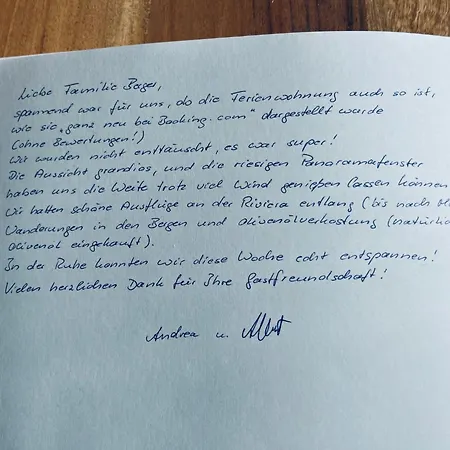 Liebe Familie Berger,
spannend war für uns, ob die Ferienwohnung auch so ist,
wie sie „ganz neu bei Booking.com" dargestellt wurde
(ohne Bewertungen!)
Wir wurden nicht enttäuscht, es war super!
Die Aussicht grandios, und die riesigen Panoramafenster
haben uns die Weite trotz viel Wind genießen lassen können
Wir hatten schöne Ausflüge an der Riviera entlang (bis nach
Wanderungen in den Bergen und Olivenölverkostung (natürlich
Olivenöl eingekauft).
In der Ruhe konnten wir diese Woche echt entspannen!
Vielen herzlichen Dank für Ihre Gastfreundschaft!
Andrea u.